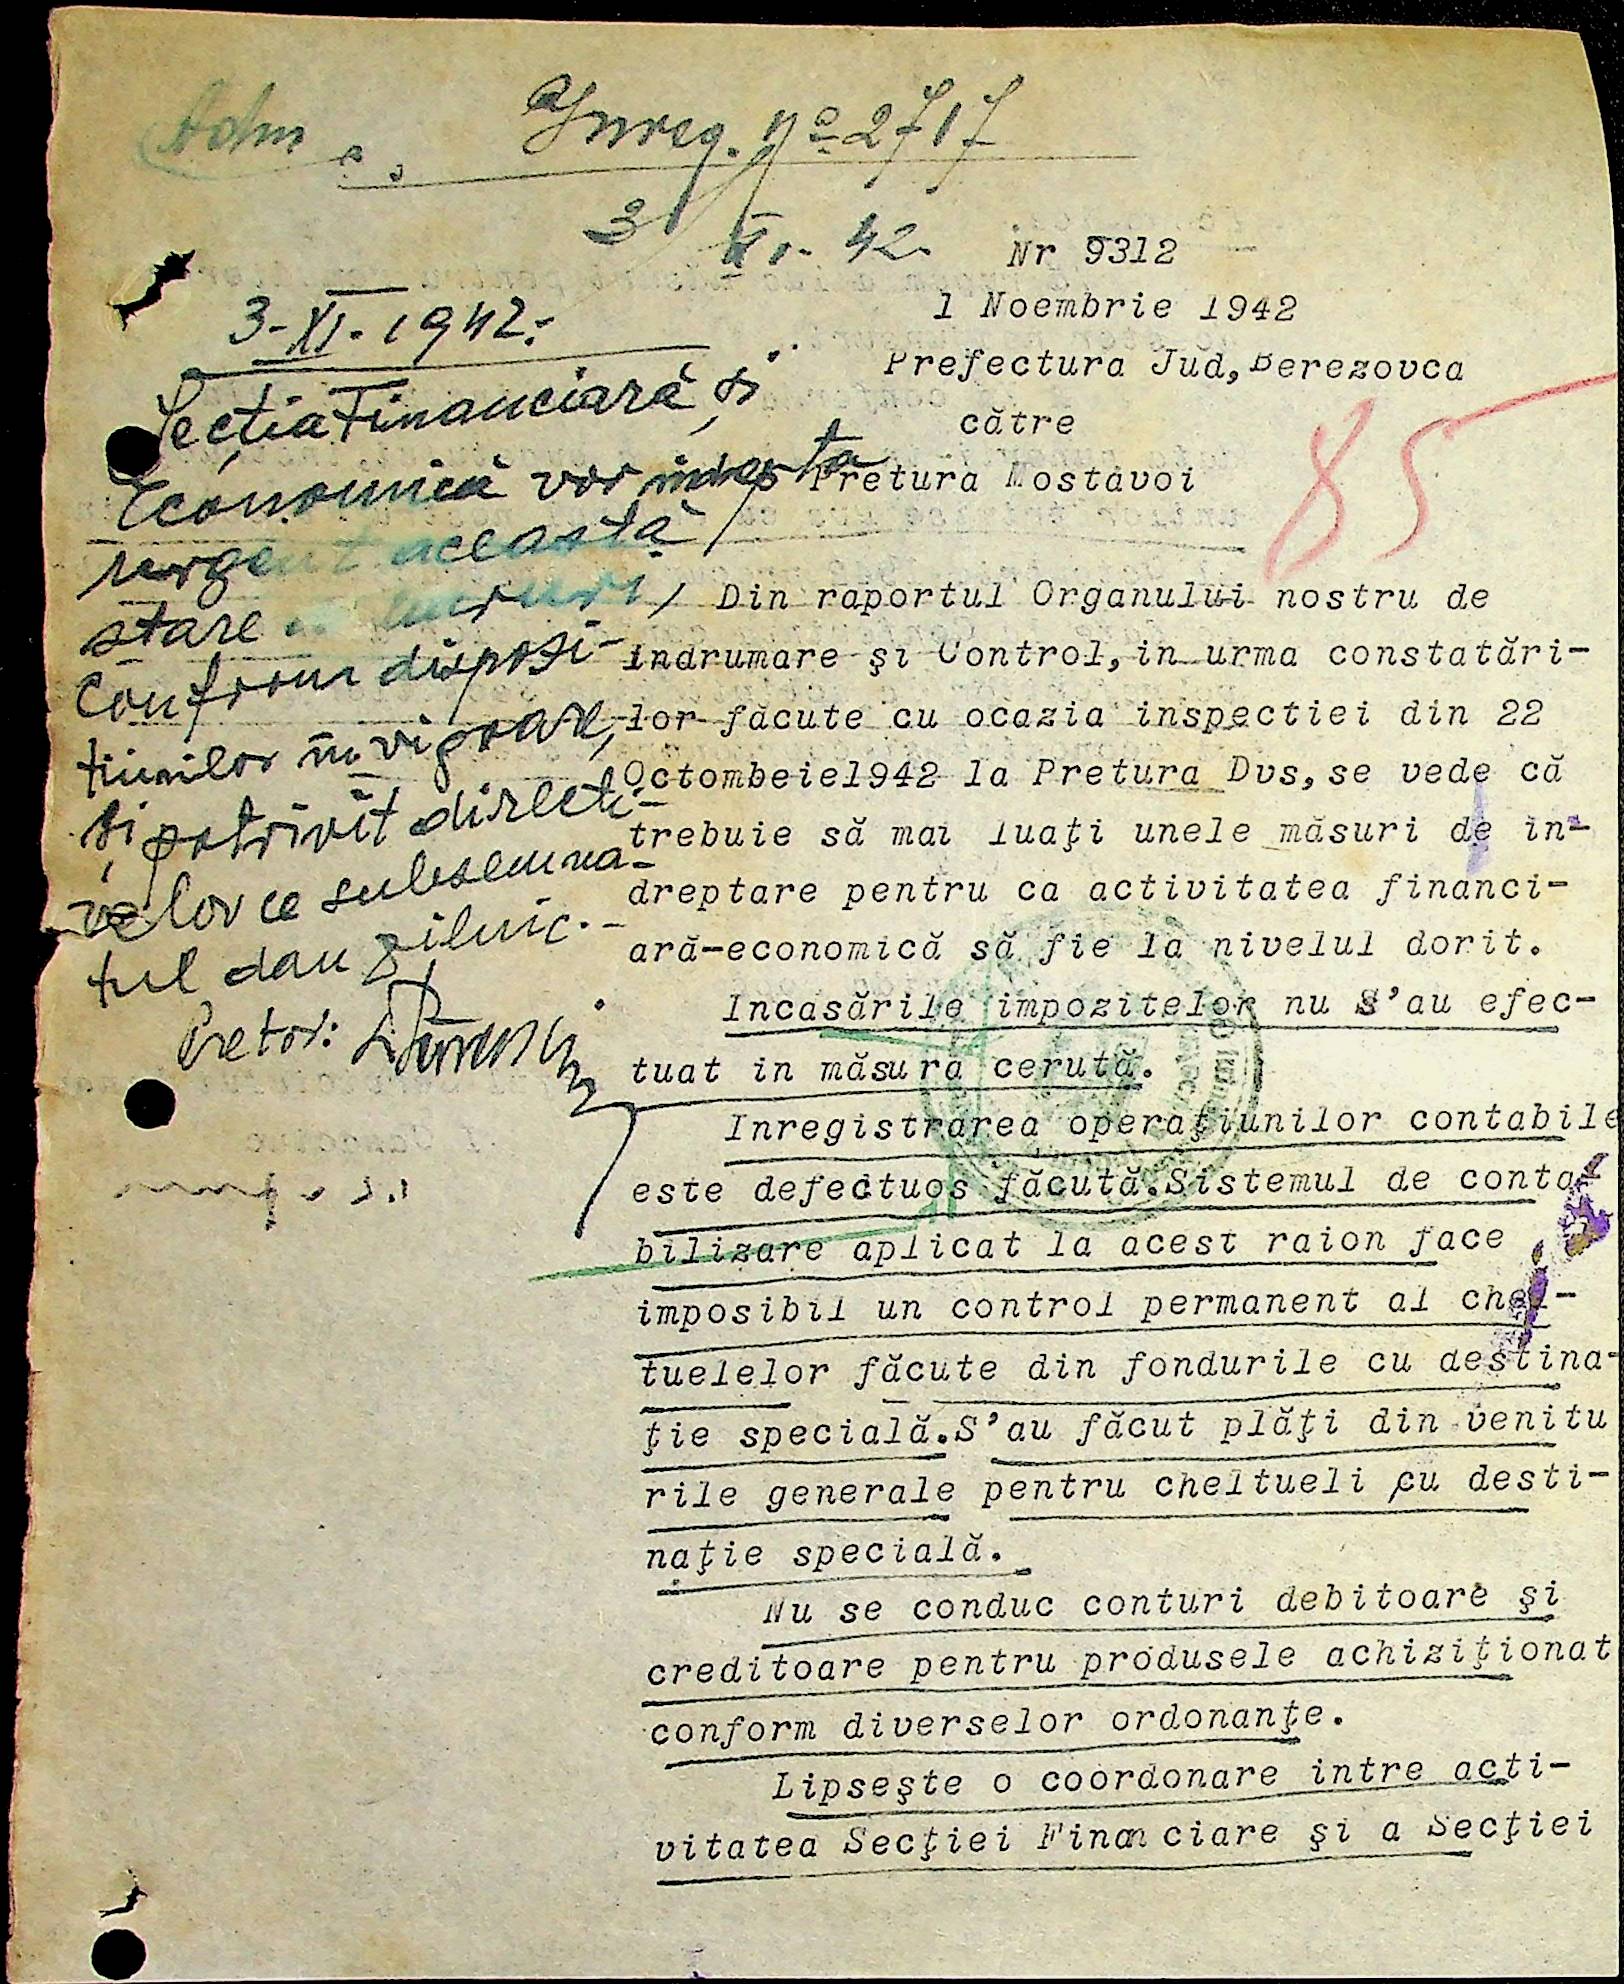 Adm
Inreg. No 2717
3 XI. 42.
Nr 9312
1 Noembrie 1942
Prefectura Jud, Berezovca
către
Pretura Mostavoi
85
3-XI-1942:
Secția Financiară și
Economică vor
urgent această
stare lucruri,
Conform dispozi-
țiunilor în vigoare,
și potrivit directi-
velor ce subsemna-
tul dau zilnic.-
Pretor:
Din raportul Organului nostru de
Indrumare şi Control, in urma constatări-
lor făcute cu ocazia inspectiei din 22
Octombeie1942 la Pretura Dvs, se vede că
trebuie să mai luaţi unele măsuri de in-
dreptare pentru ca activitatea financi-
ară-economică să fie la nivelul dorit.
Incasările impozitelor nu s'au efec-
tuat in măsura cerută.
Inregistrarea operaţiunilor contabile
este defectuos făcută.Sistemul de conta-
bilizare aplicat la acest raion face
imposibil un control permanent al chel-
tuelelor făcute din fondurile cu destina-
ţie specială.S'au făcut plăţi din venitu
rile generale pentru cheltueli cu desti-
naţie specială.
Nu se conduc conturi debitoare şi
creditoare pentru produsele achiziţionat
conform diverselor ordonanţe.
Lipseşte o coordonare intre acti-
vitatea Secţiei Financiare şi a Secţiei